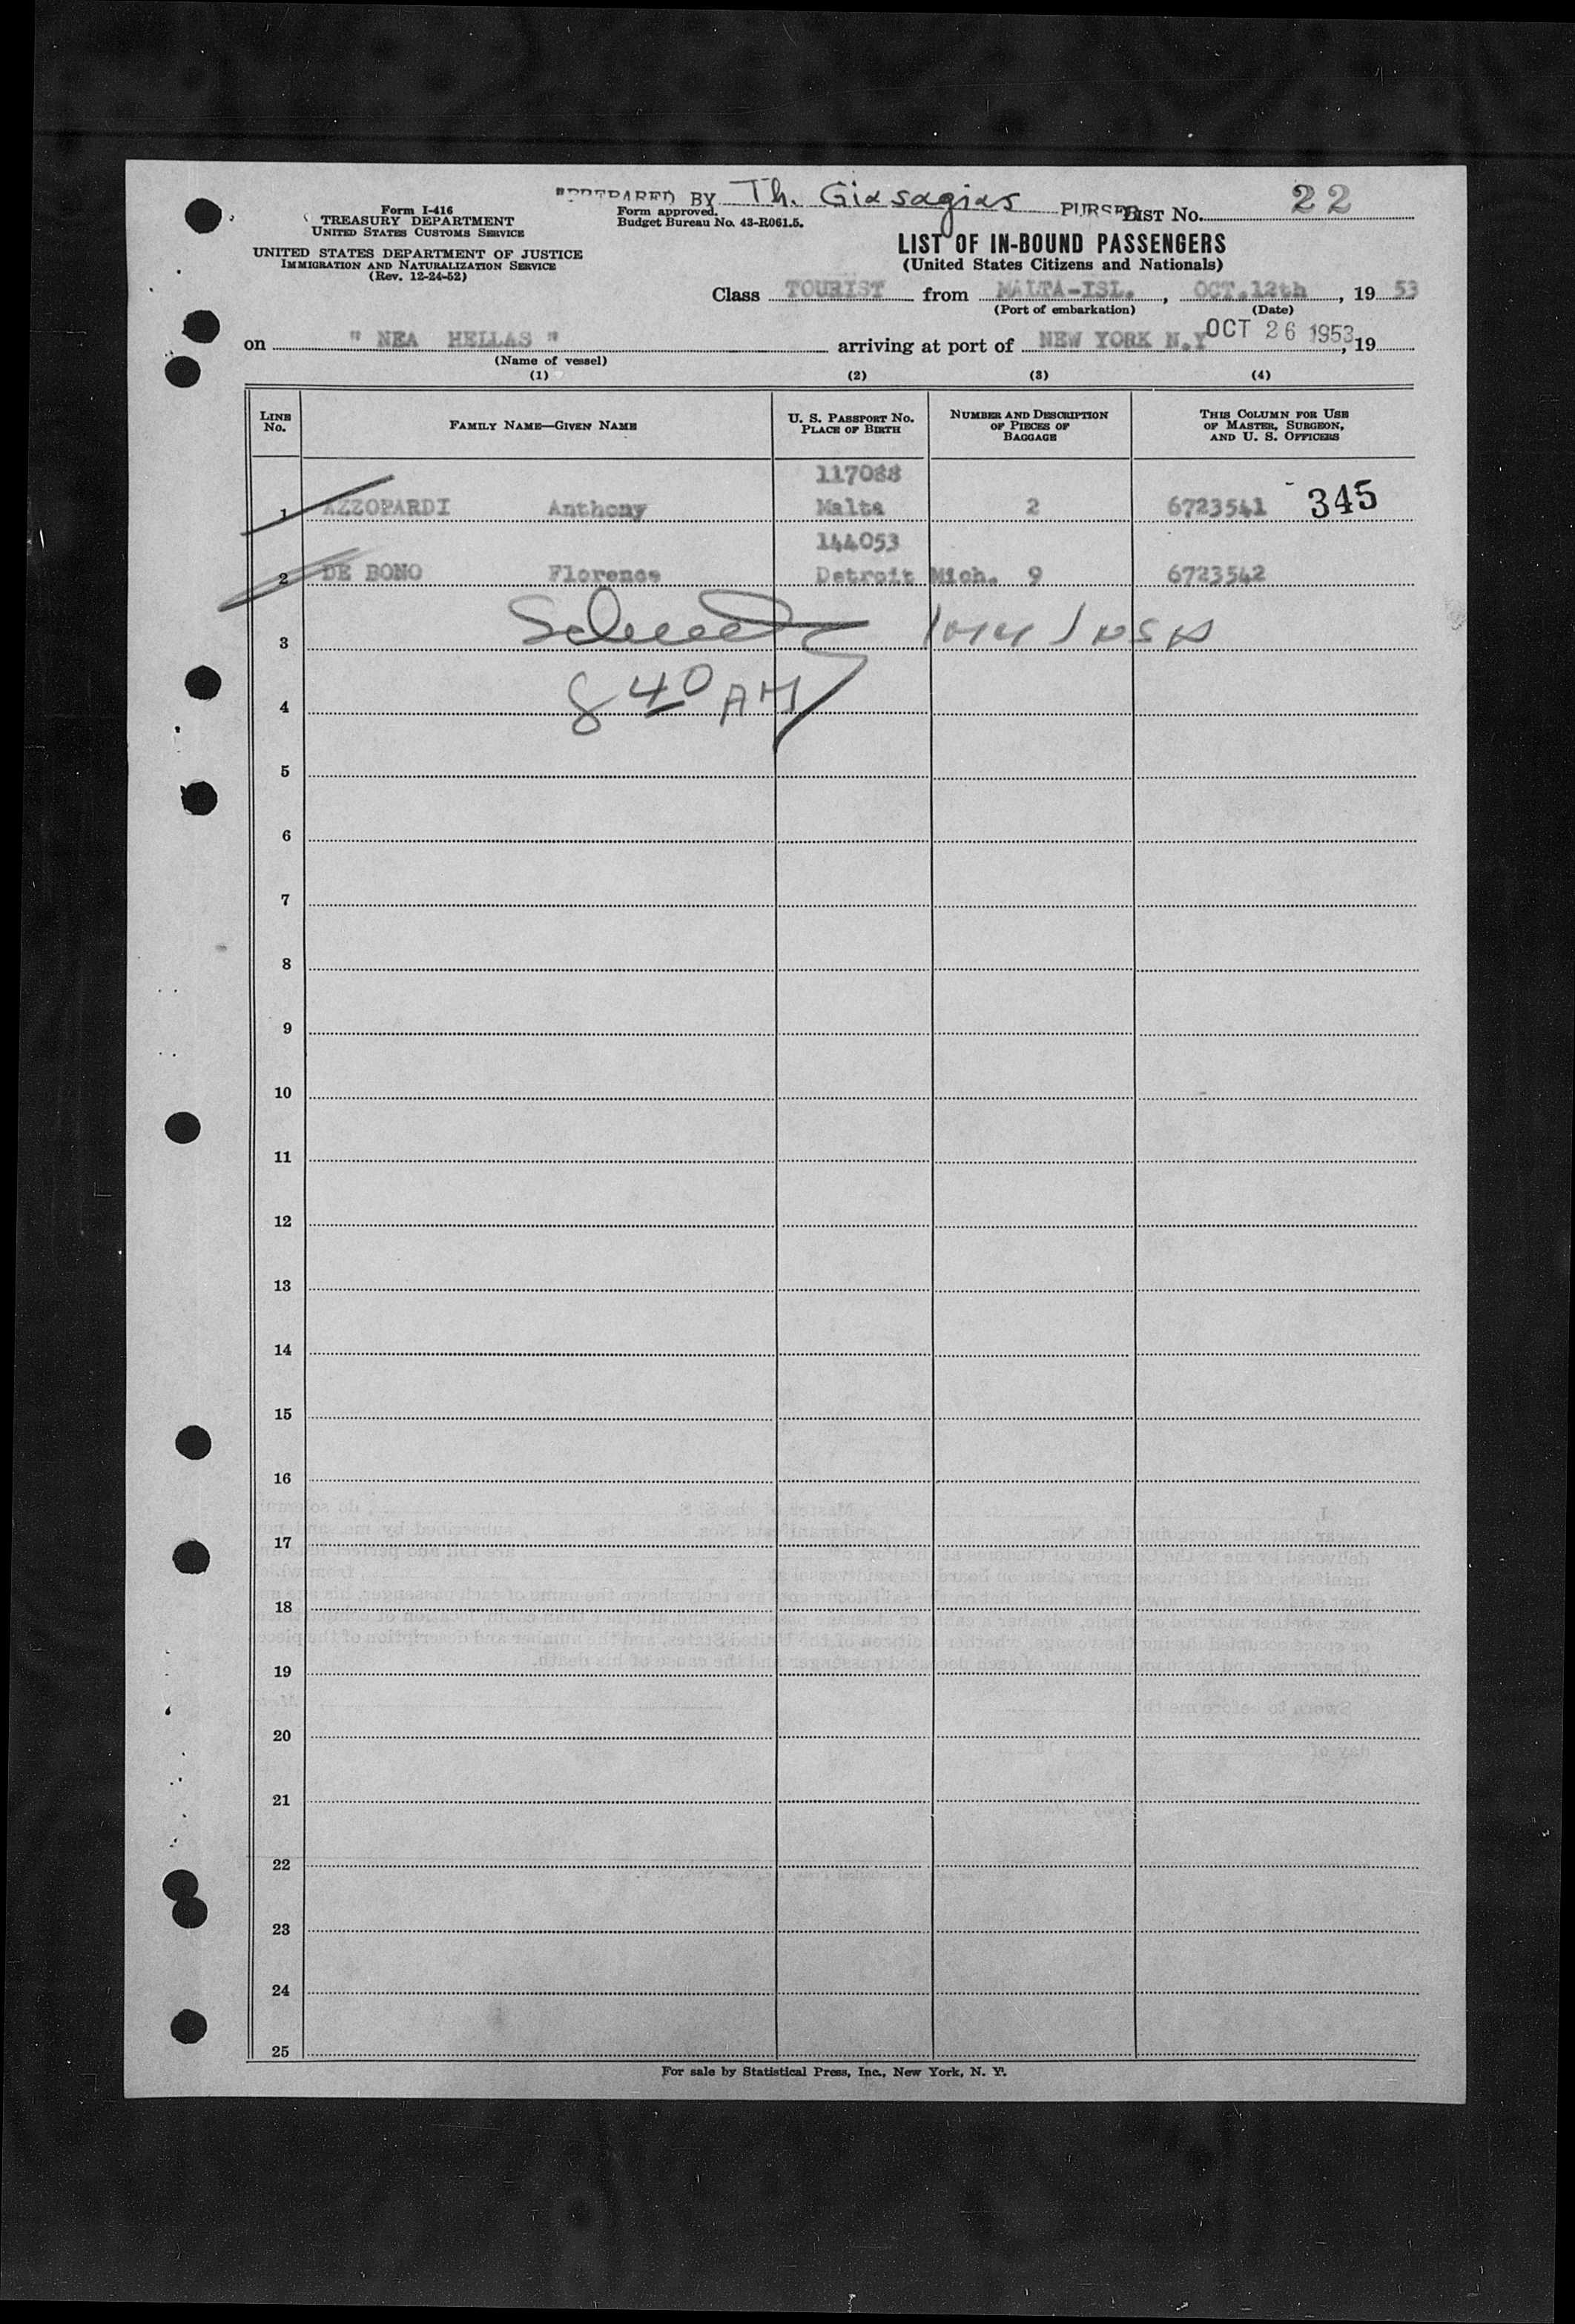 PREPARED BY Th. Giasagias PURSER List No. 22
Form I-416
TREASURY DEPARTMENT
UNITED STATES CUSTOMS SERVICE
Form approved.
Budget Bureau No. 43-R061.5.
UNITED STATES DEPARTMENT OF JUSTICE
IMMIGRATION AND NATURALIZATION SERVICE
(Rev. 12-24-52)
LIST OF IN-BOUND PASSENGERS
(United States Citizens and Nationals)
Class TOURIST from MALTA-ISL. , OCT.12th , 19 53
(Port of embarkation) (Date)
on " NEA HELLAS " arriving at port of NEW YORK N.Y OCT 26 1953, 19
(Name of vessel)
(1) (2) (3) (4)
LINE No. FAMILY NAME—GIVEN NAME U. S. PASSPORT NO. PLACE OF BIRTH NUMBER AND DESCRIPTION OF PIECES OF BAGGAGE THIS COLUMN FOR USE OF MASTER, SURGEON, AND U. S. OFFICERS
117088
1 AZZOPARDI Anthony Malta 2 6723541 345
144053
2 DE BONO Florence Detroit Mich. 9 6723542
3
4 8 40 AM
5
6
7
8
9
10
11
12
13
14
15
16
17
18
19
20
21
22
23
24
25
For sale by Statistical Press, Inc., New York, N. Y.